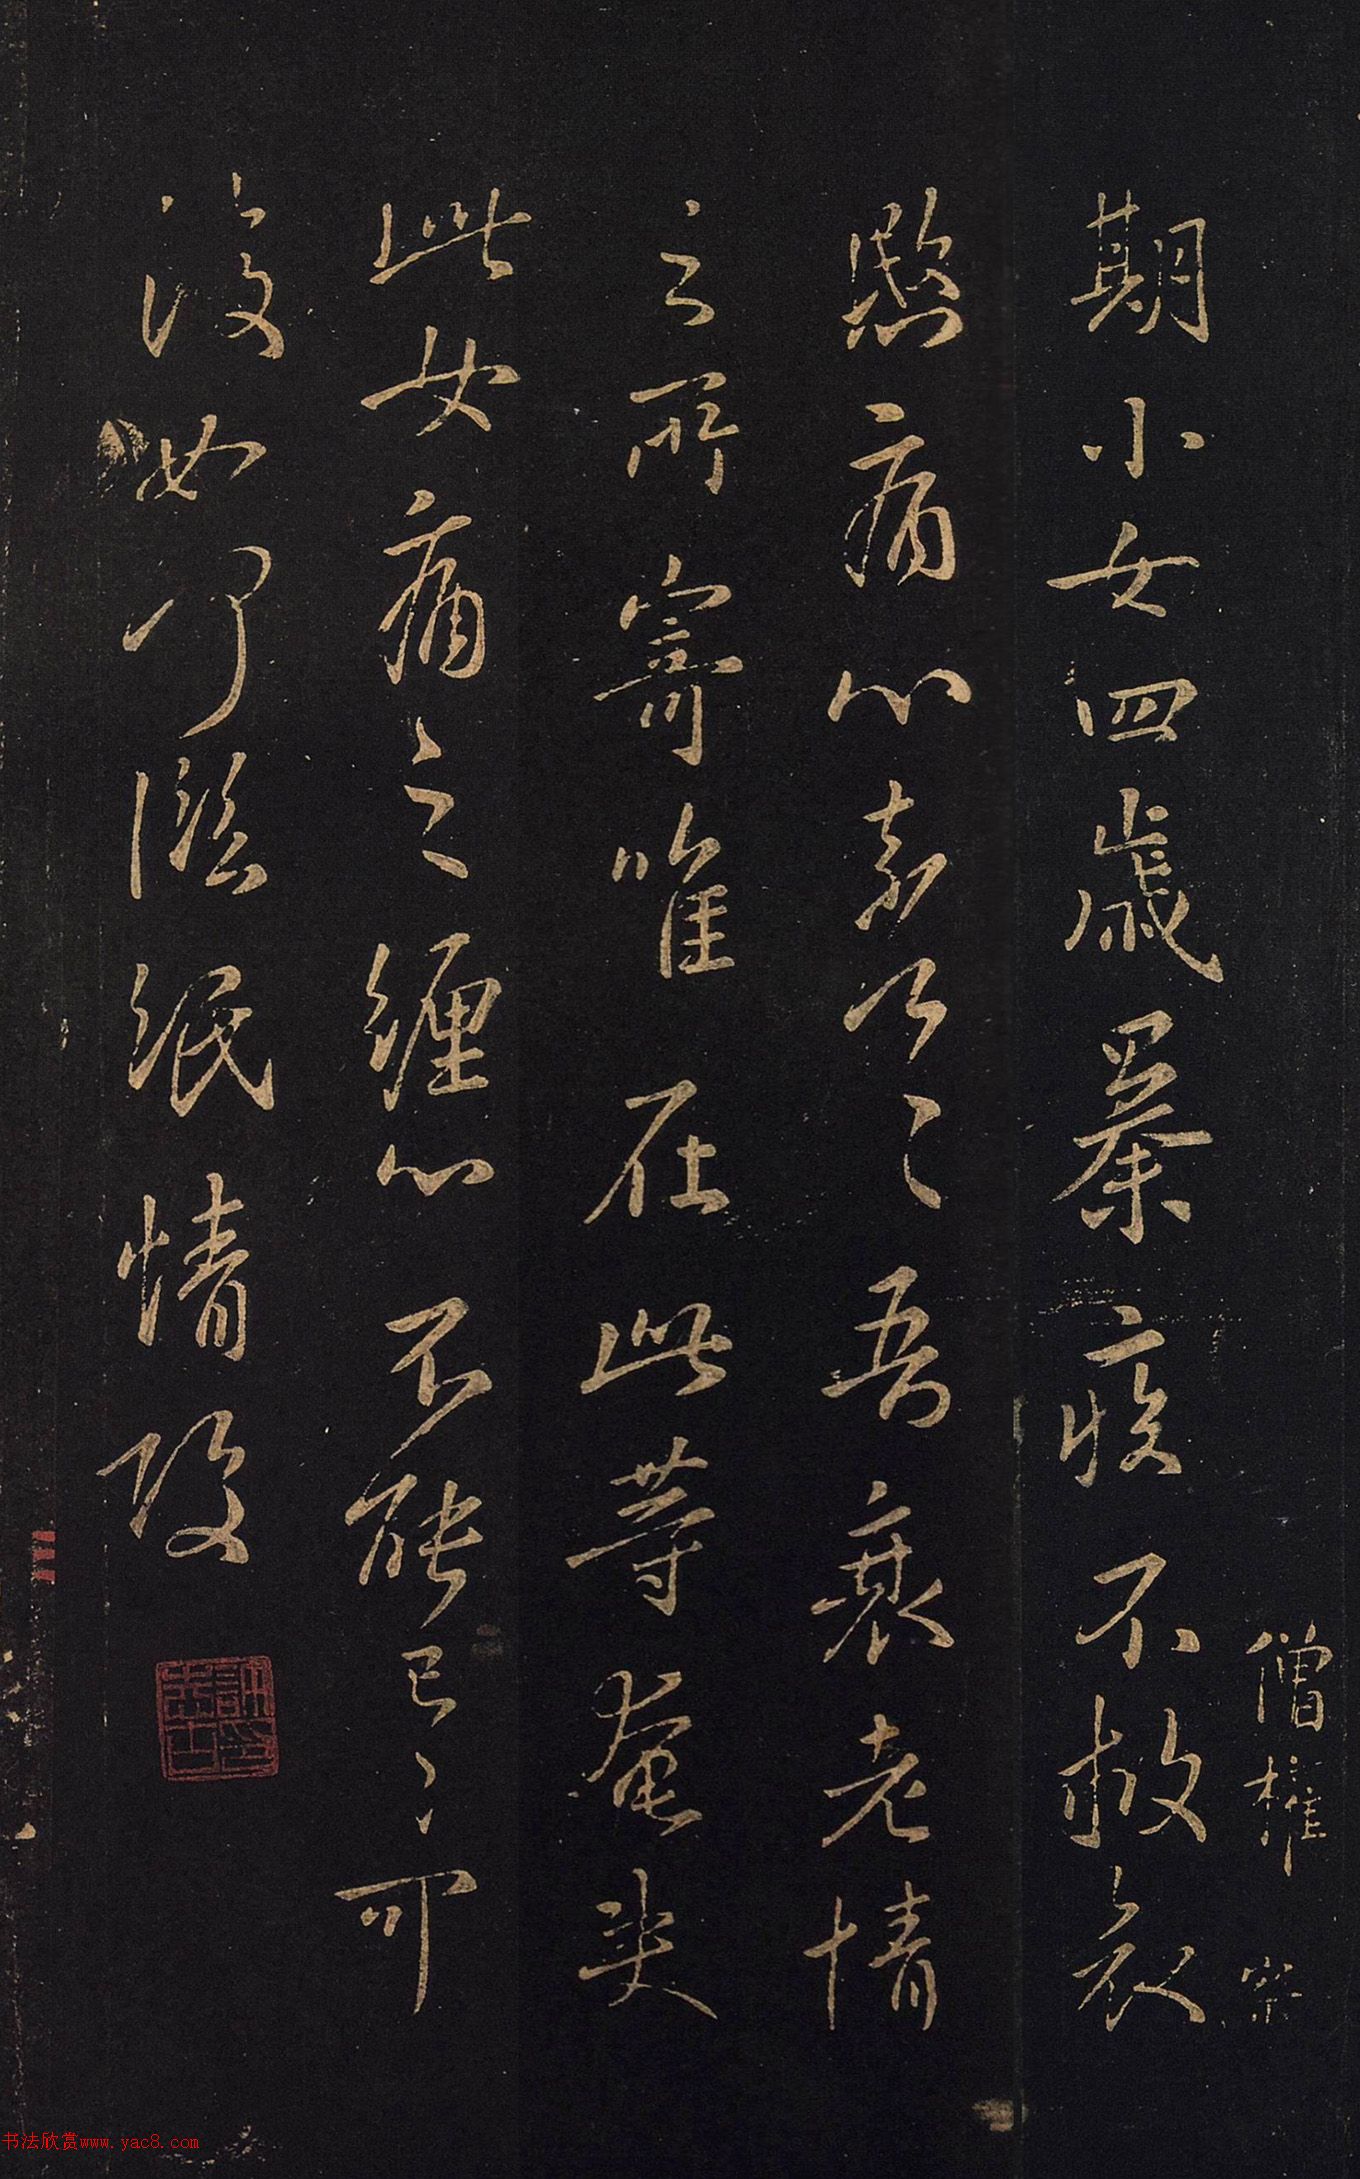 僧權
察
期小女四歲暴疾不救哀
愍痛心奈何奈何吾衰老情
之所寄唯在此等奄失
此女痛之纏心不能已已可
復如何臨紙情酸
書法欣赏www.yac8.com